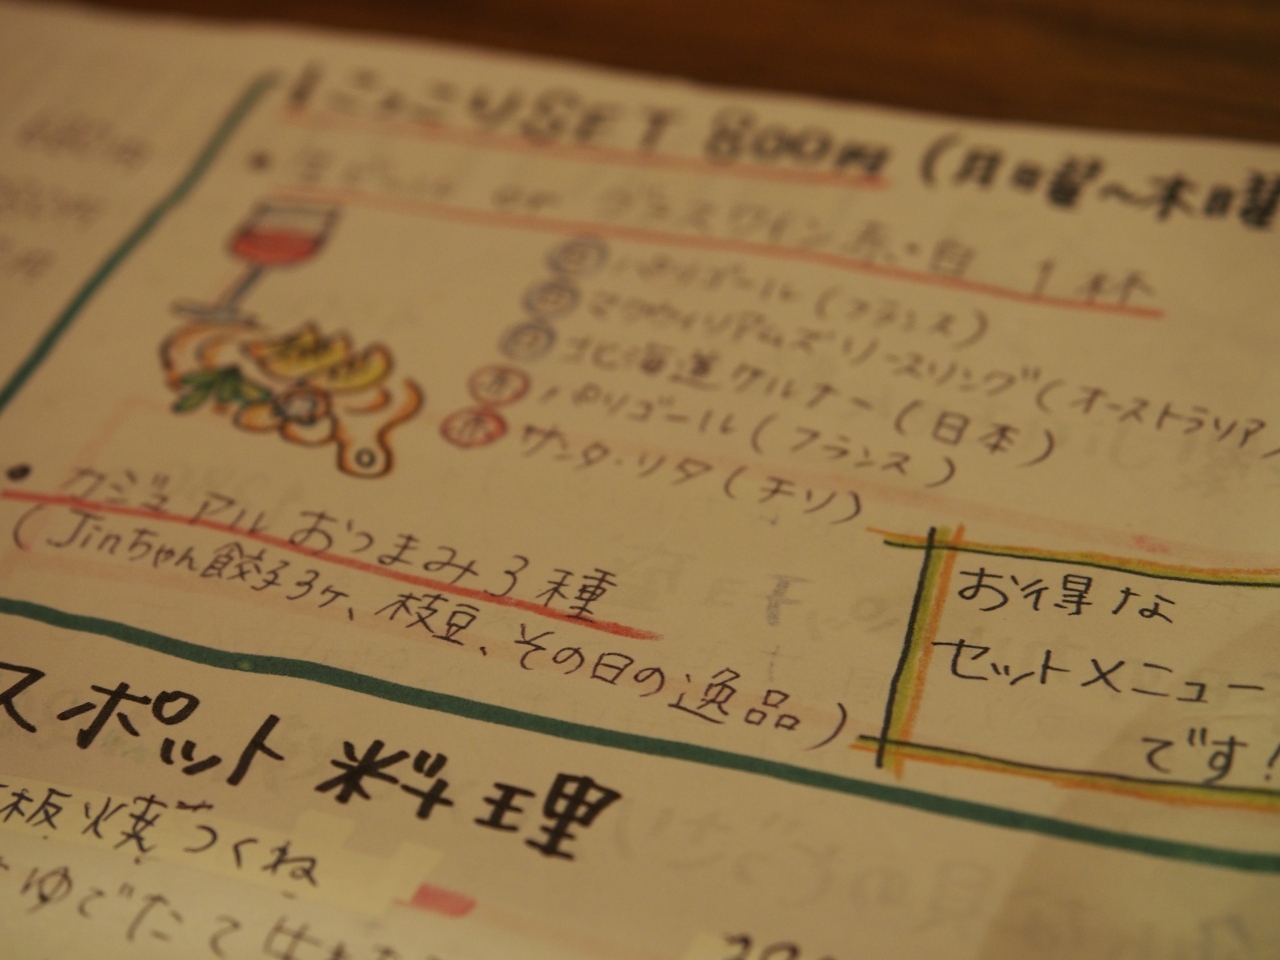 ニャニVSET 800円 (月曜〜木曜
• 生ビール or グラスワイン赤・白 1杯
白 パリゴール (フランス)
白 マクウィリアムズ リースリング (オーストラリア)
白 北海道ケルナー (日本)
赤 パリゴール (フランス)
赤 サンタ・リタ (チリ)
• カジュアル おつまみ3種
(Jinちゃん餃子3ヶ、枝豆、その日の逸品)
お得な
セットメニュー
です!
スポット料理
板焼つくね
ゆでたて